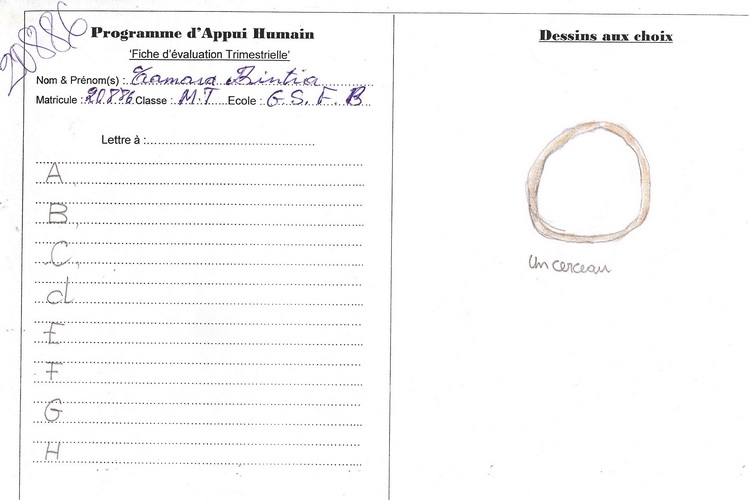 20886
Programme d'Appui Humain
'Fiche d'évaluation Trimestrielle'
Nom & Prénom(s) : Camara Bintia
Matricule : 20886 Classe : M.T Ecole : G.S.F.B
Lettre à :
A
B
C
d
E
F
G
H
Dessins aux choix
Un cerceau